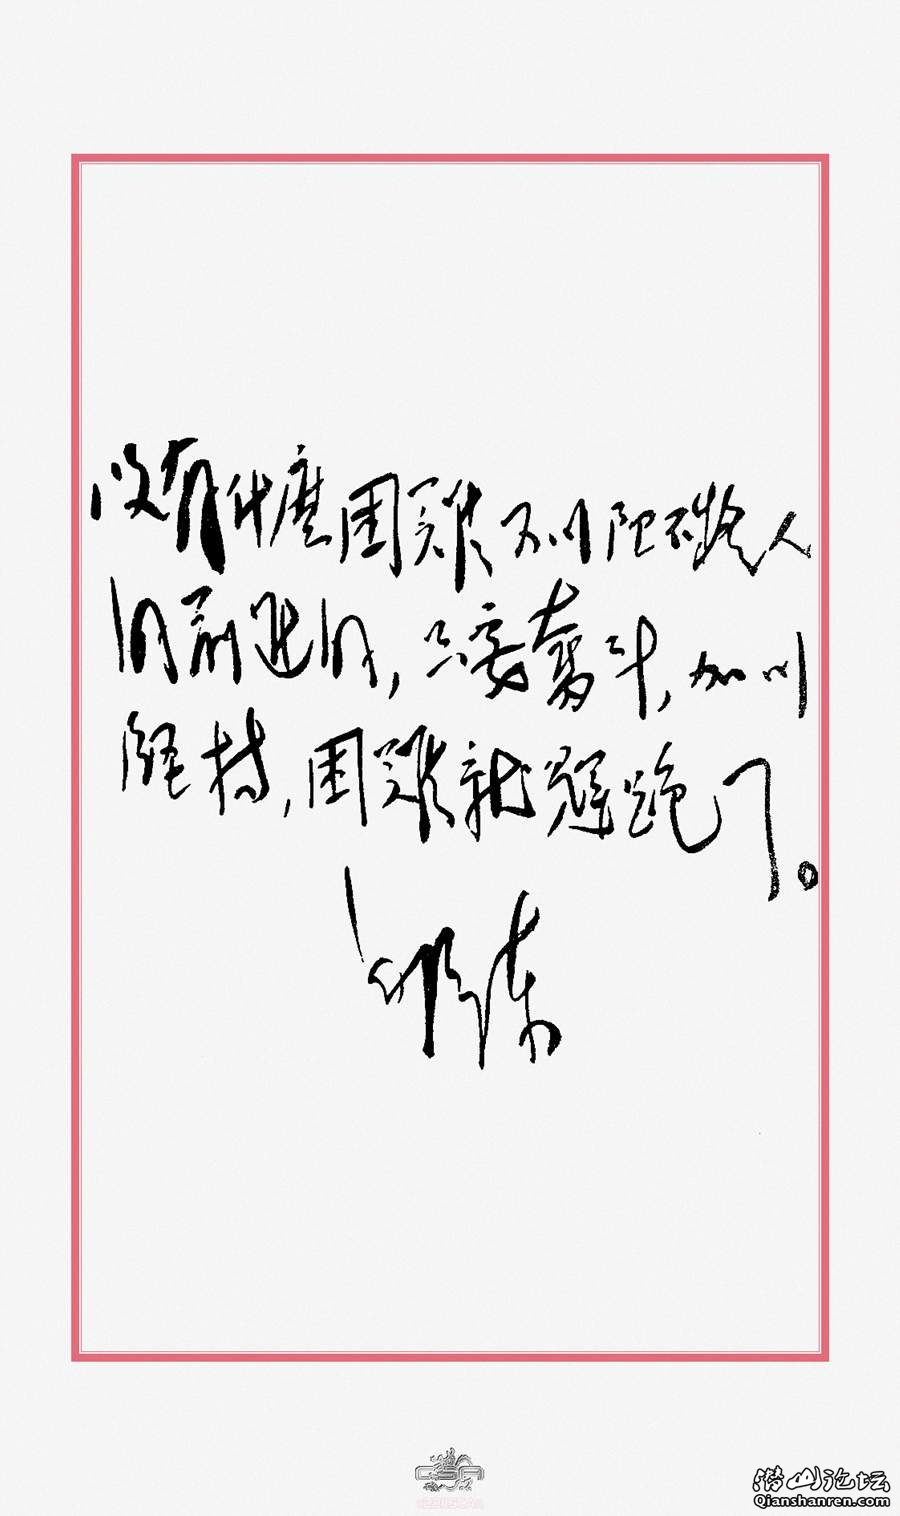 没有什麼困難可以阻礙人
的前進的，只要奮斗，加以
堅持，困難就趕跑了。
潜山论坛
Qianshanren.com